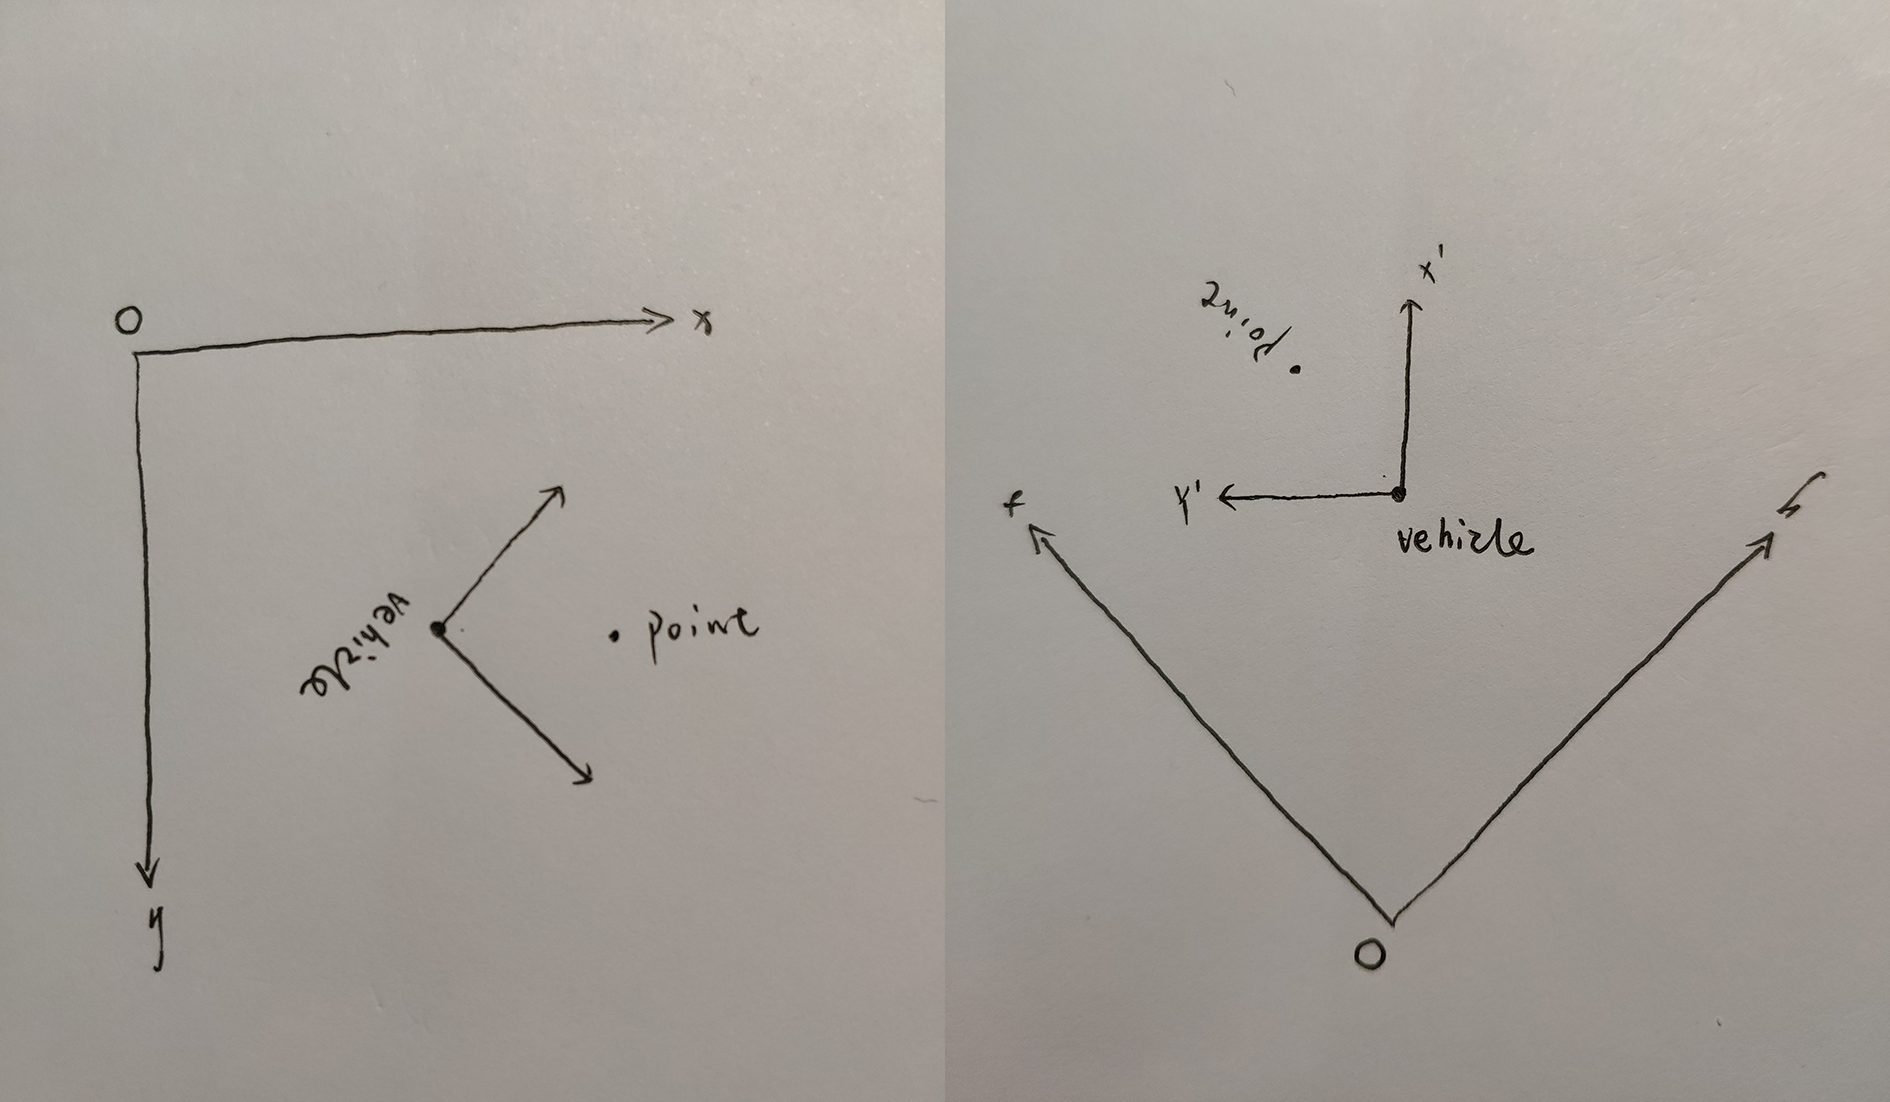 O
x
vehicle
point
y
x'
point
y'
vehicle
x
y
O